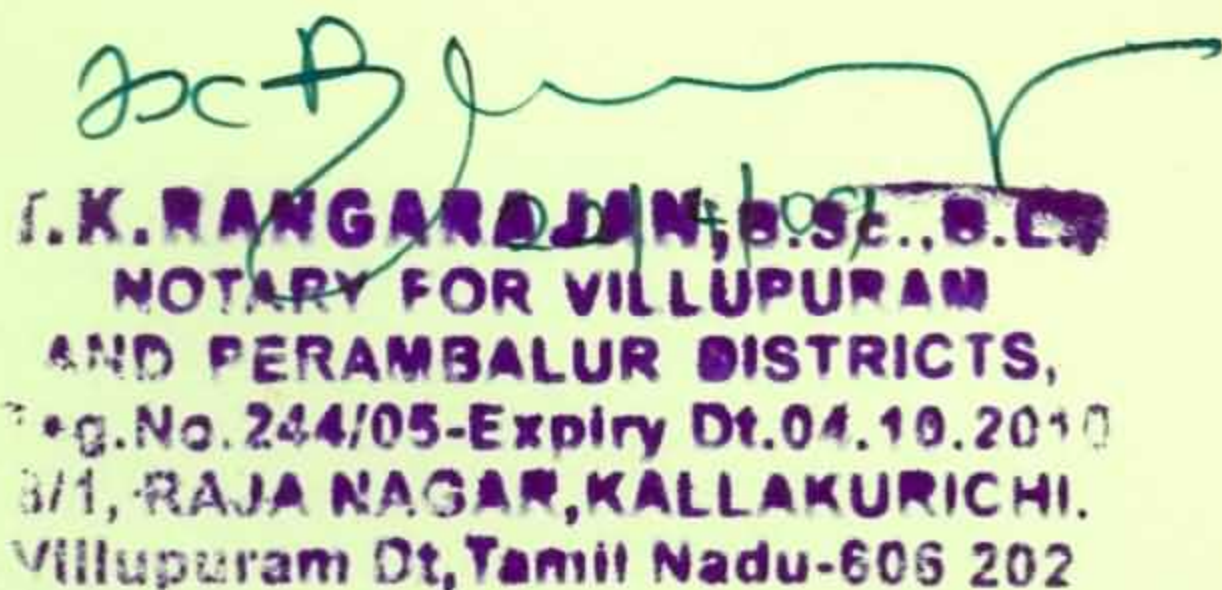 22/4/09
T.K.RANGARAJAN, B.Sc.,B.L.,
NOTARY FOR VILLUPURAM
AND PERAMBALUR DISTRICTS,
Reg.No.244/05-Expiry Dt.04.10.2010
3/1, RAJA NAGAR,KALLAKURICHI.
Villupuram Dt,Tamil Nadu-606 202